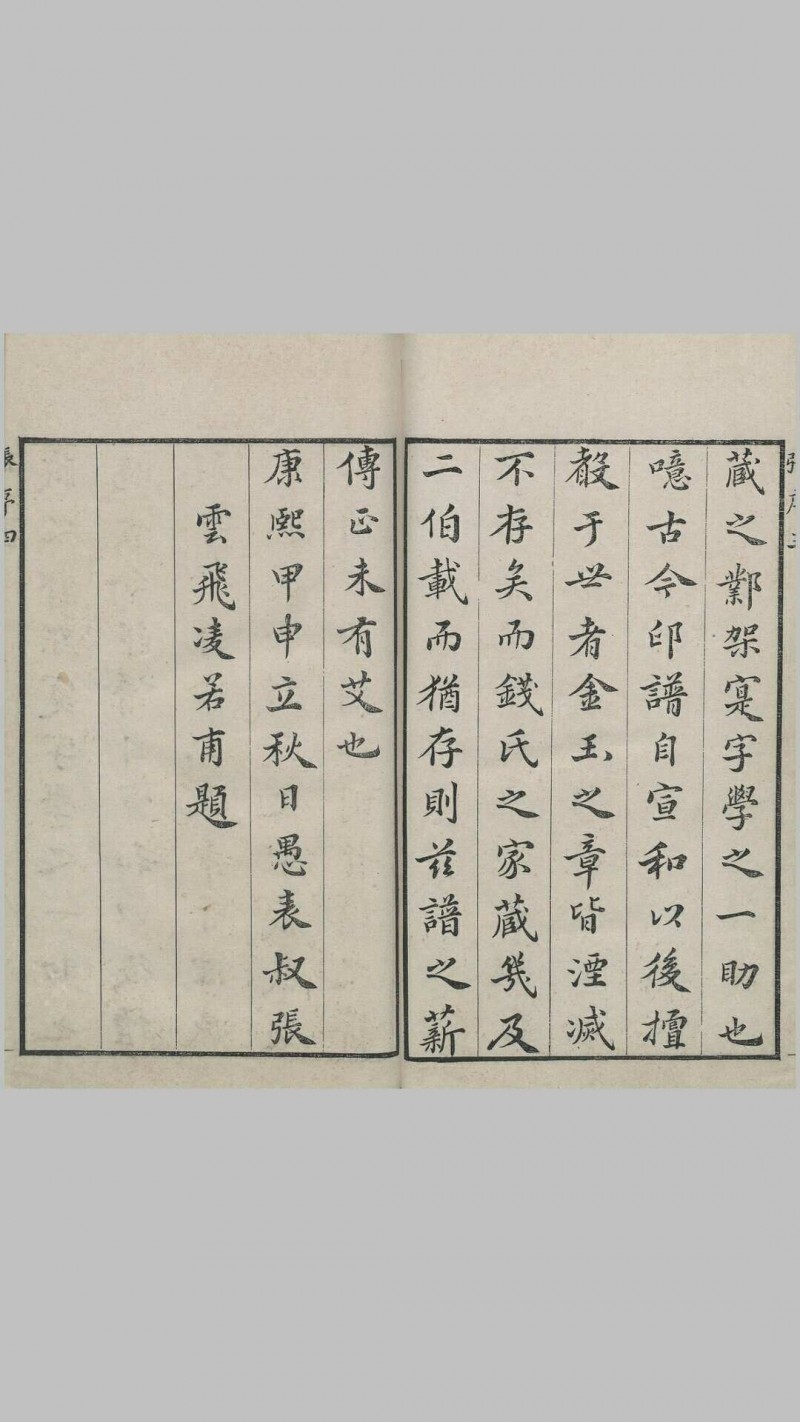 張序三
蔵之鄴架寔字學之一助也
噫古今印譜自宣和以後擅
於于世者金玉之章皆湮滅
不存矣而錢氏之家蔵幾及
二伯載而猶存則茲譜之薪
傳正未有艾也
康熙甲申立秋日愚表叔張
雲飛凌若甫題
張序四